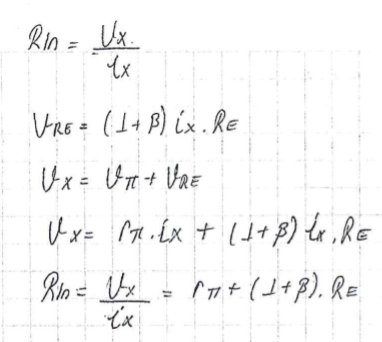 Rin = Vx / ix
VRE = (1+β) ix . RE
Vx = Vπ + VRE
Vx = rπ . ix + (1+β) ix . RE
Rin = Vx / ix = rπ + (1+β) . RE